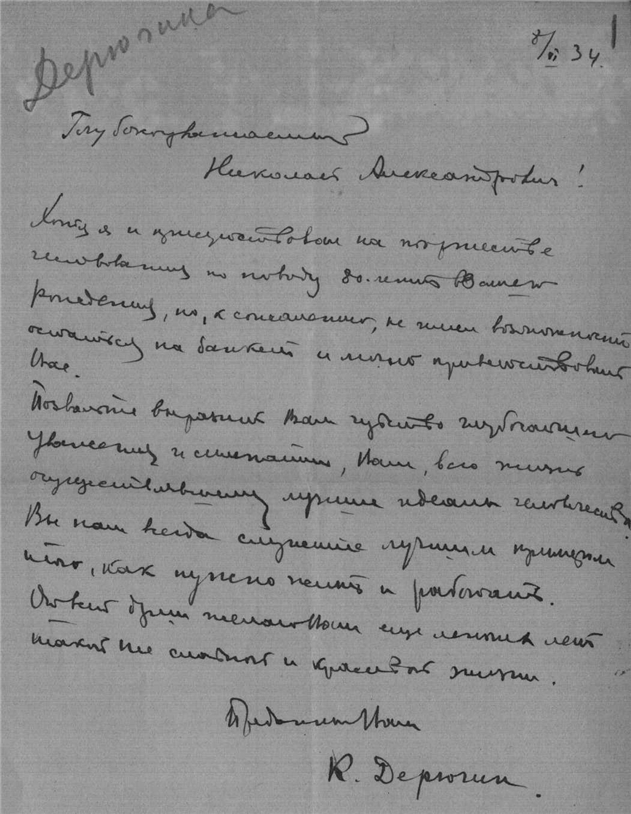 Дерюгина
8/VI 34.
1
Глубокоуважаемый
Николай Александрович!
Хотя я и присутствовал на торжестве
чествования по поводу 80-летия Вашего
рождения, но, к сожалению, не имел возможности
остаться на банкет и лично приветствовать
Вас.
Позвольте выразить Вам чувство глубочайшего
уважения и симпатии, Вам, всю жизнь
осуществлявшему лучшие идеалы человечества.
Вы нам всегда служите лучшим примером
того, как нужно жить и работать.
От всей души желаю Вам еще лет
такой же славной и красивой жизни.
Преданный Вам
К. Дерюгин.